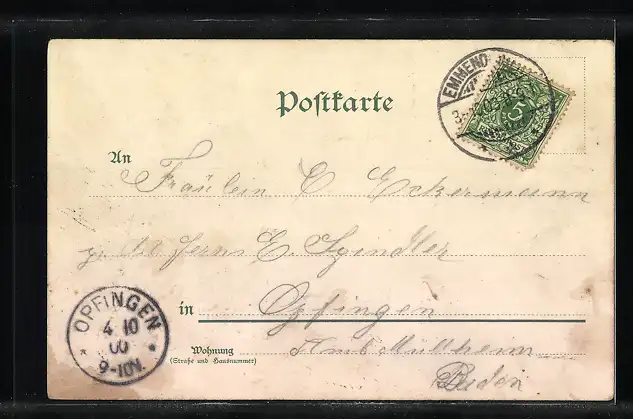 Postkarte
EMMEND
5
An
Fräulein E Eckermann
E. Spindler
in Opfingen
Wohnung
(Straße und Hausnummer)
Amt Müllheim
Baden
OPFINGEN
4 10
00
9-10V.